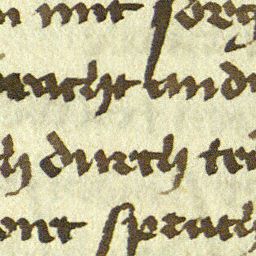 mit sorg
racht und
h durch tr
ont sprach